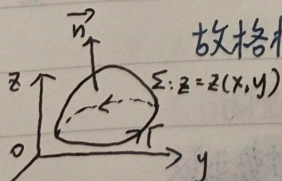 故格
n
z
Σ: z = z(x, y)
Γ
O
y